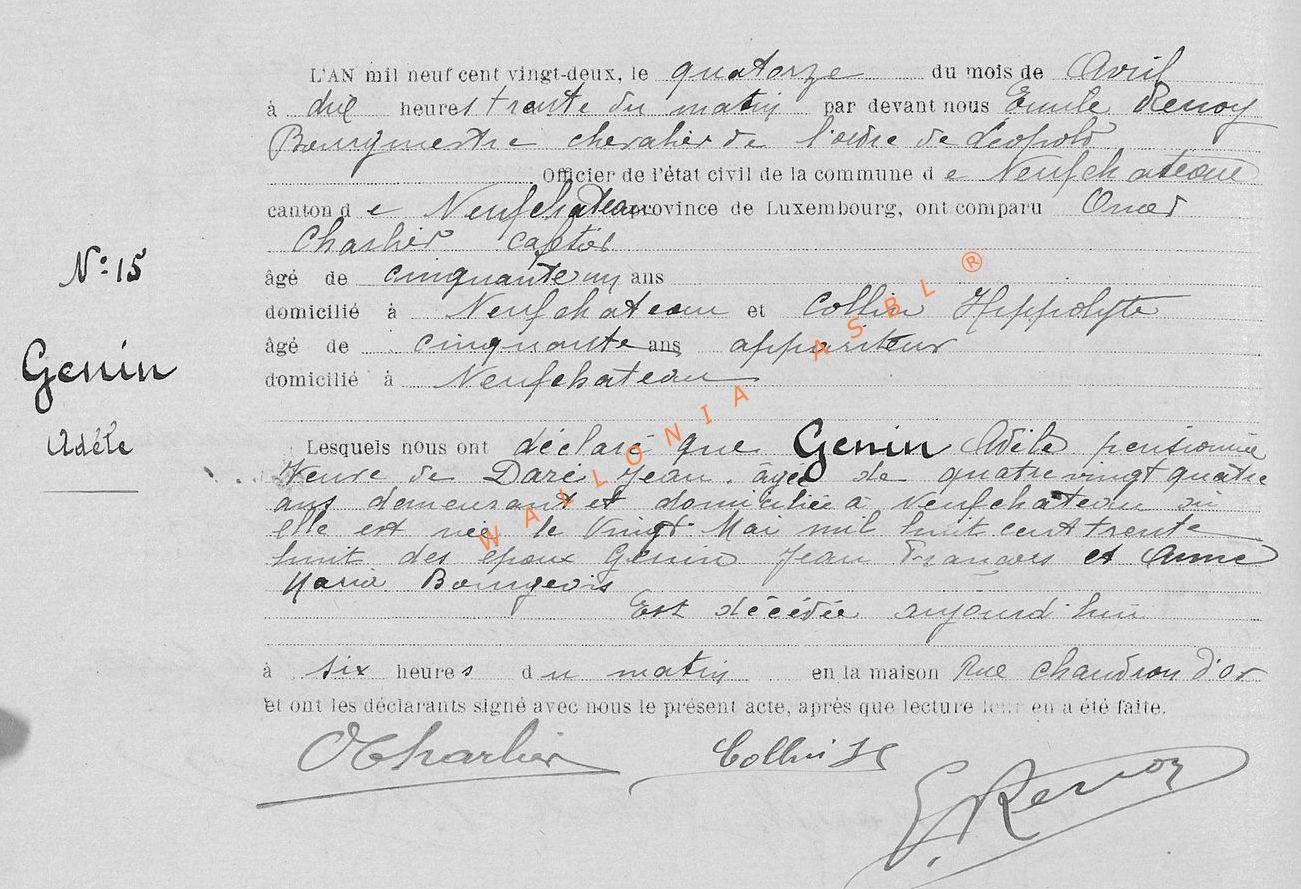 L'AN mil neuf cent vingt-deux, le quatorze du mois de Avril
à dix heures trente du matin par devant nous Emile Renoy
Bourgmestre chevalier de l'ordre de Léopold
Officier de l'état civil de la commune de Neufchateau
canton de Neufchateau province de Luxembourg, ont comparu Omer
Charlier
âgé de cinquante un ans
domicilié à Neufchateau et Collin Hippolyte
âgé de cinquante ans appariteur
domicilié à Neufchateau
N° 15
Genin
Adèle
Lesquels nous ont déclaré que Genin Adèle pensionnée
Veuve de Daré Jean, âgée de quatre vingt quatre
ans demeurant et domiciliée à Neufchateau où
elle est née le Vingt Mai mil huit cent trente
huit des époux Genin Jean François et Anne
Marie Bourgeois
Est décédée aujourd'hui
à six heures du matin en la maison Rue chaudron d'or
et ont les déclarants signé avec nous le présent acte, après que lecture leur en a été faite.
OCharlier Collin H
E. Renoy
WALLONIA ASBL ®